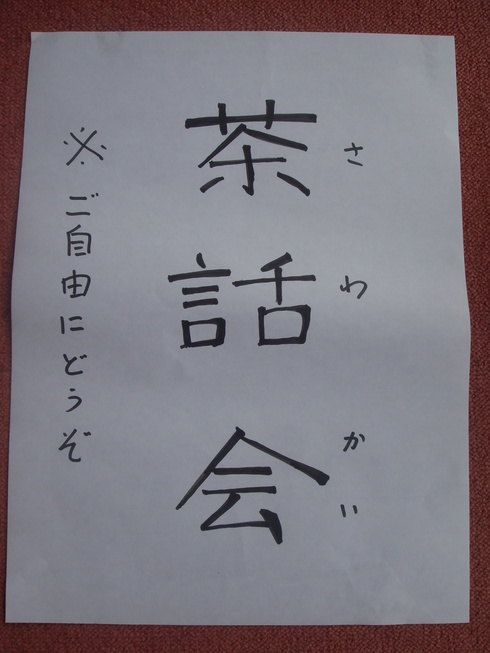 茶話会
さわかい
※ご自由にどうぞ